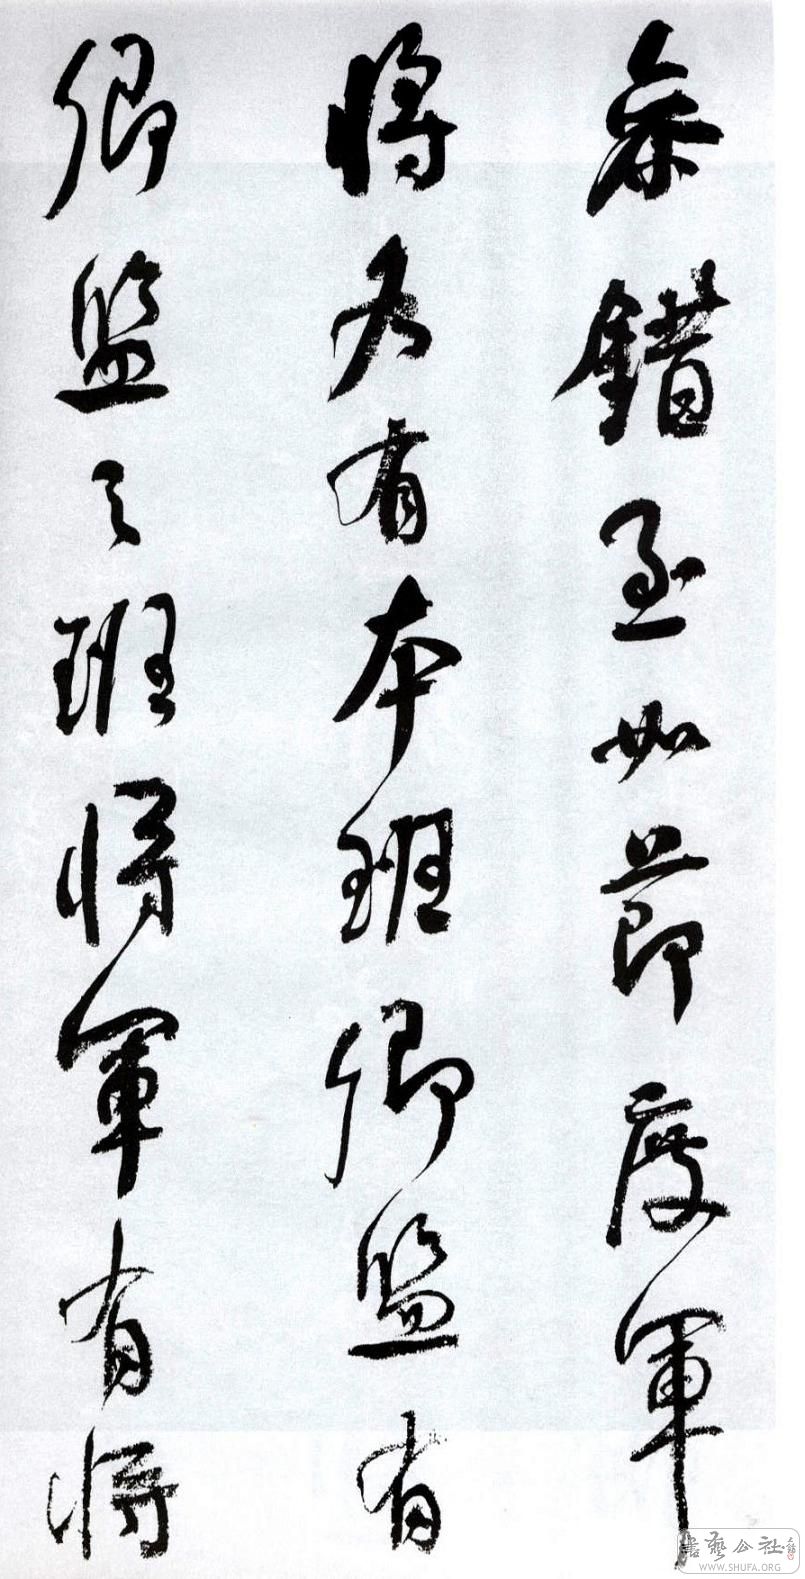 叅錯至如節度軍
將各有本班卿監有
卿監之班將軍有將
書藝公社
WWW.SHUFA.ORG